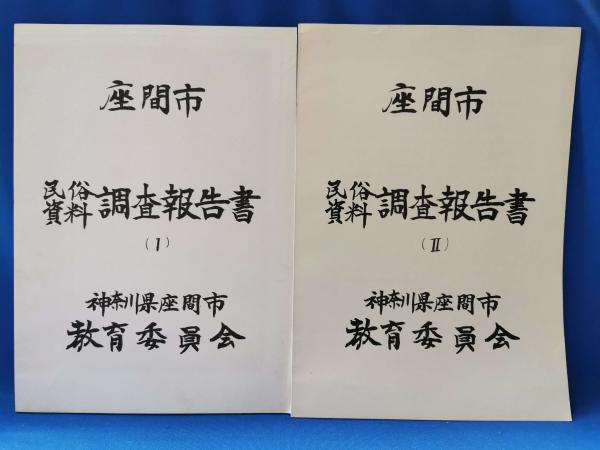 座間市
民俗資料調査報告書
(I)
神奈川県座間市
教育委員会
座間市
民俗資料調査報告書
(II)
神奈川県座間市
教育委員会